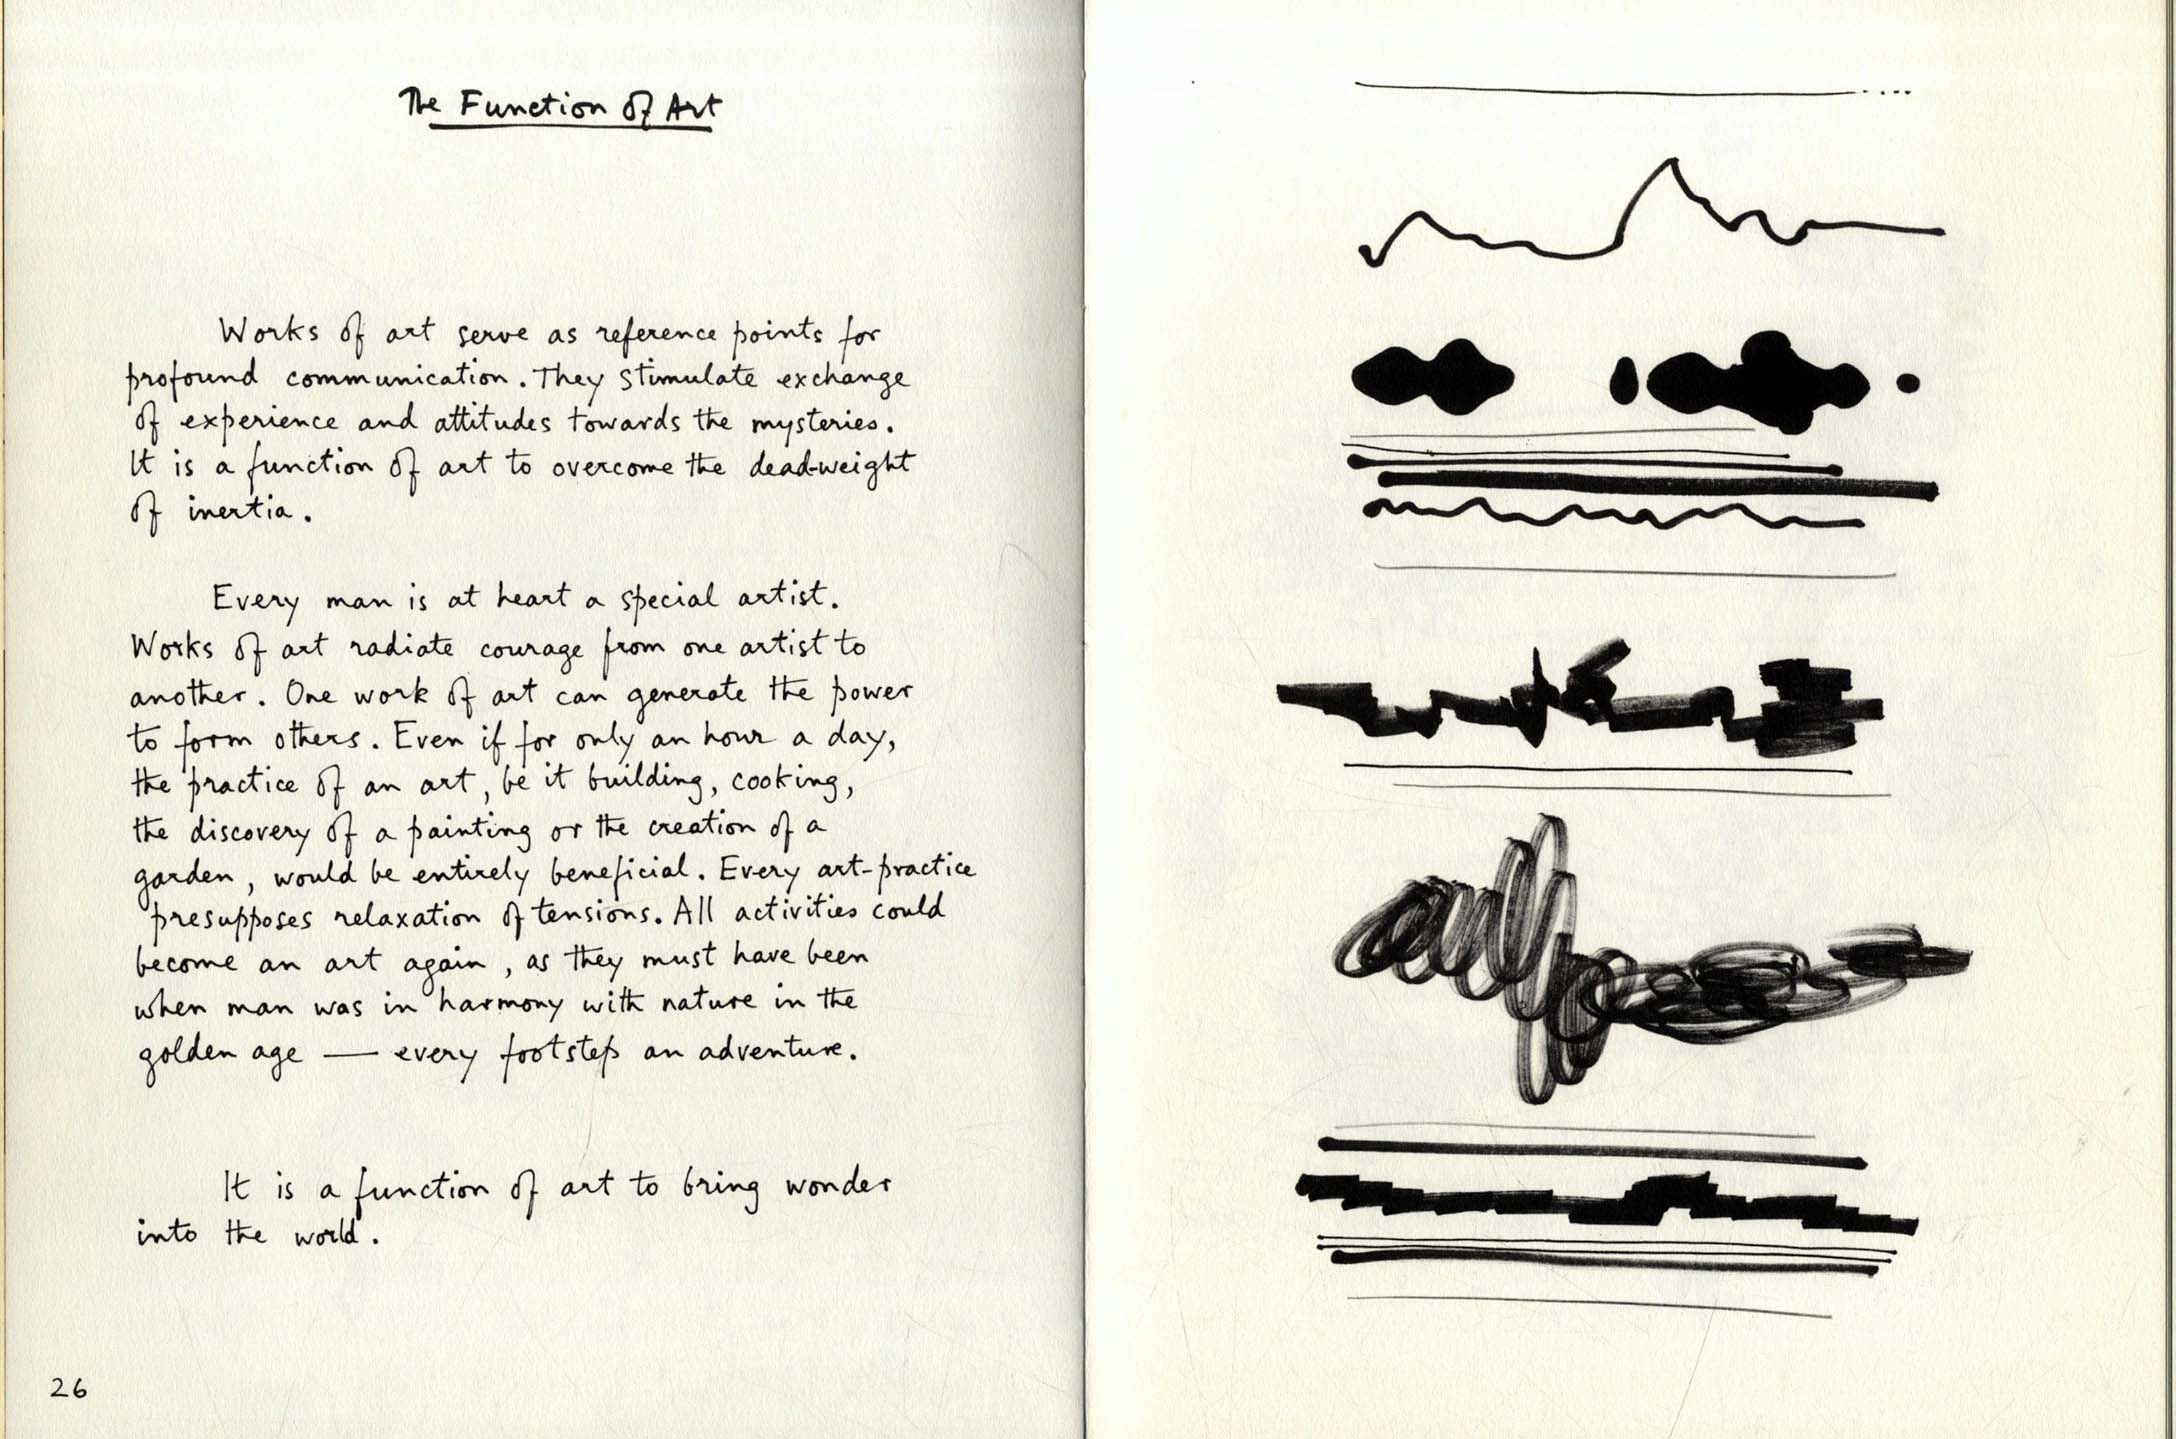 The Function of Art
Works of art serve as reference points for
profound communication. They stimulate exchange
of experience and attitudes towards the mysteries.
It is a function of art to overcome the dead-weight
of inertia.
Every man is at heart a special artist.
Works of art radiate courage from one artist to
another. One work of art can generate the power
to form others. Even if for only an hour a day,
the practice of an art, be it building, cooking,
the discovery of a painting or the creation of a
garden, would be entirely beneficial. Every art-practice
presupposes relaxation of tensions. All activities could
become an art again, as they must have been
when man was in harmony with nature in the
golden age — every footstep an adventure.
It is a function of art to bring wonder
into the world.
26